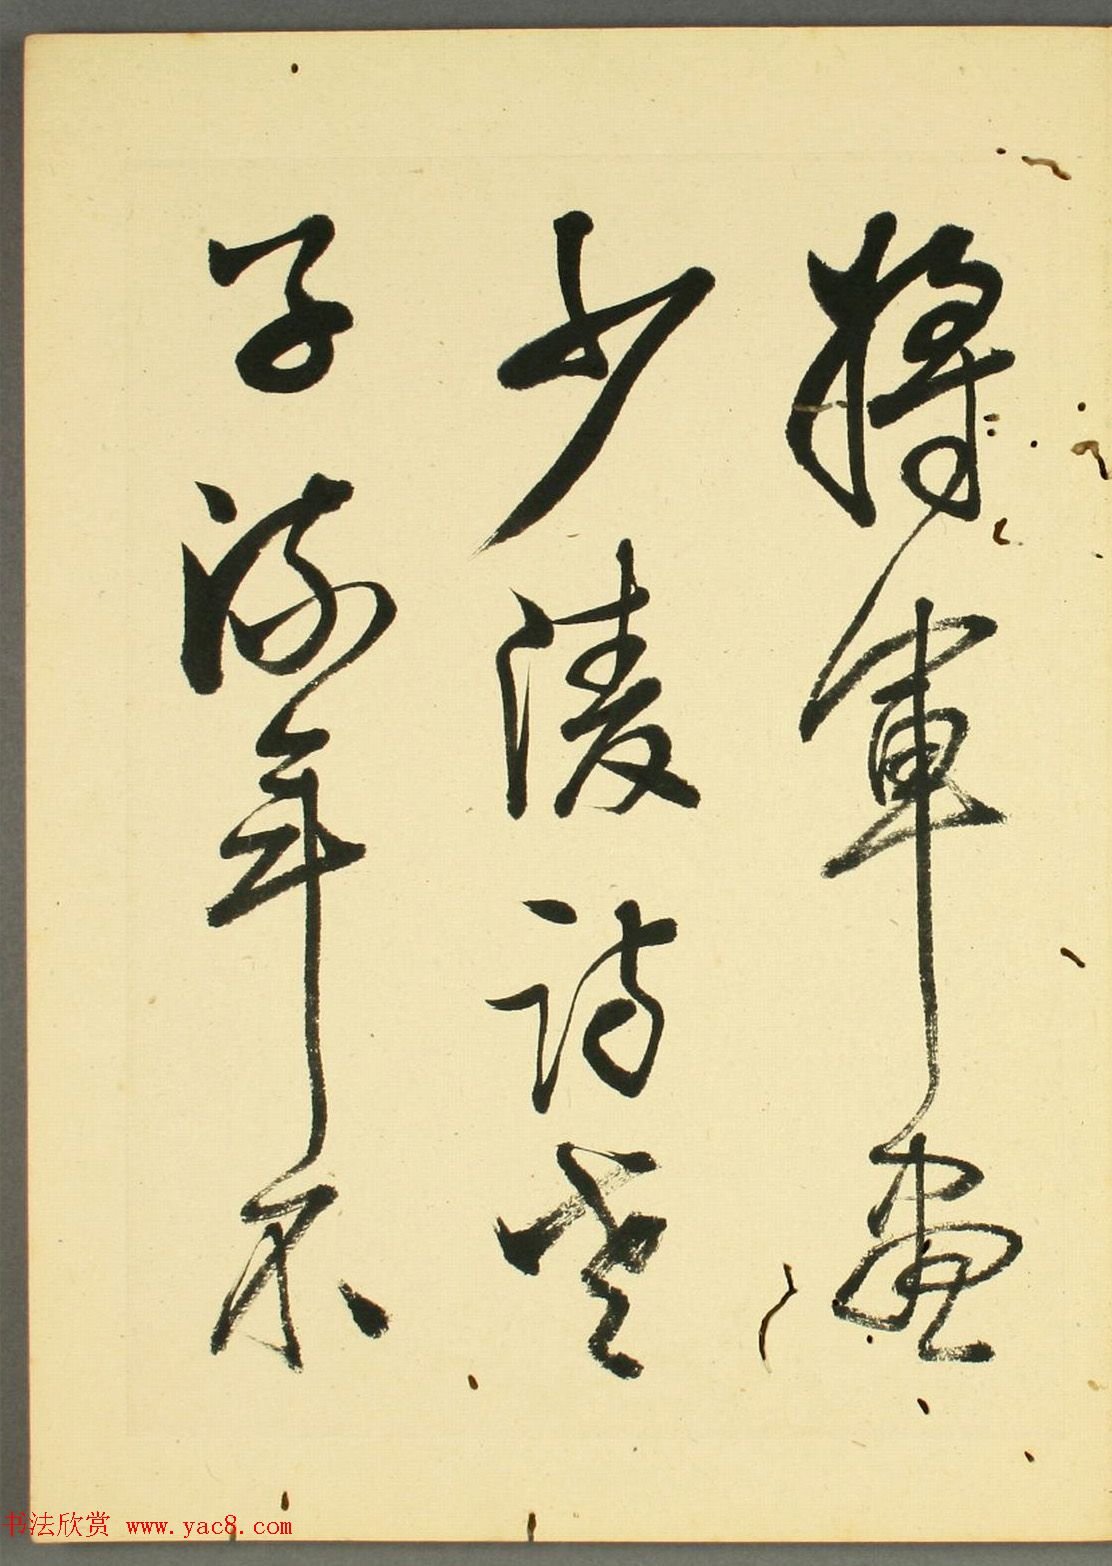 將軍畫
少陵詩老
子年不
书法欣赏 www.yac8.com